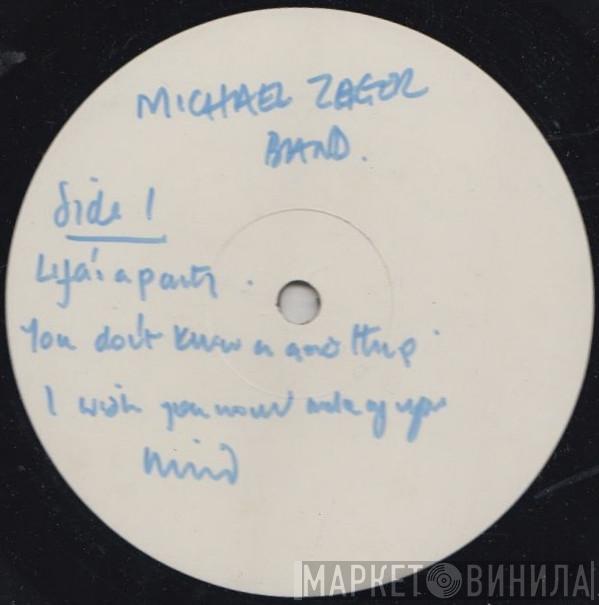 MICHAEL ZAGER
BAND.
Side 1
Life's a party.
You don't know a good thing
I wish you would make up your
mind
МАРКЕТ ВИНИЛА